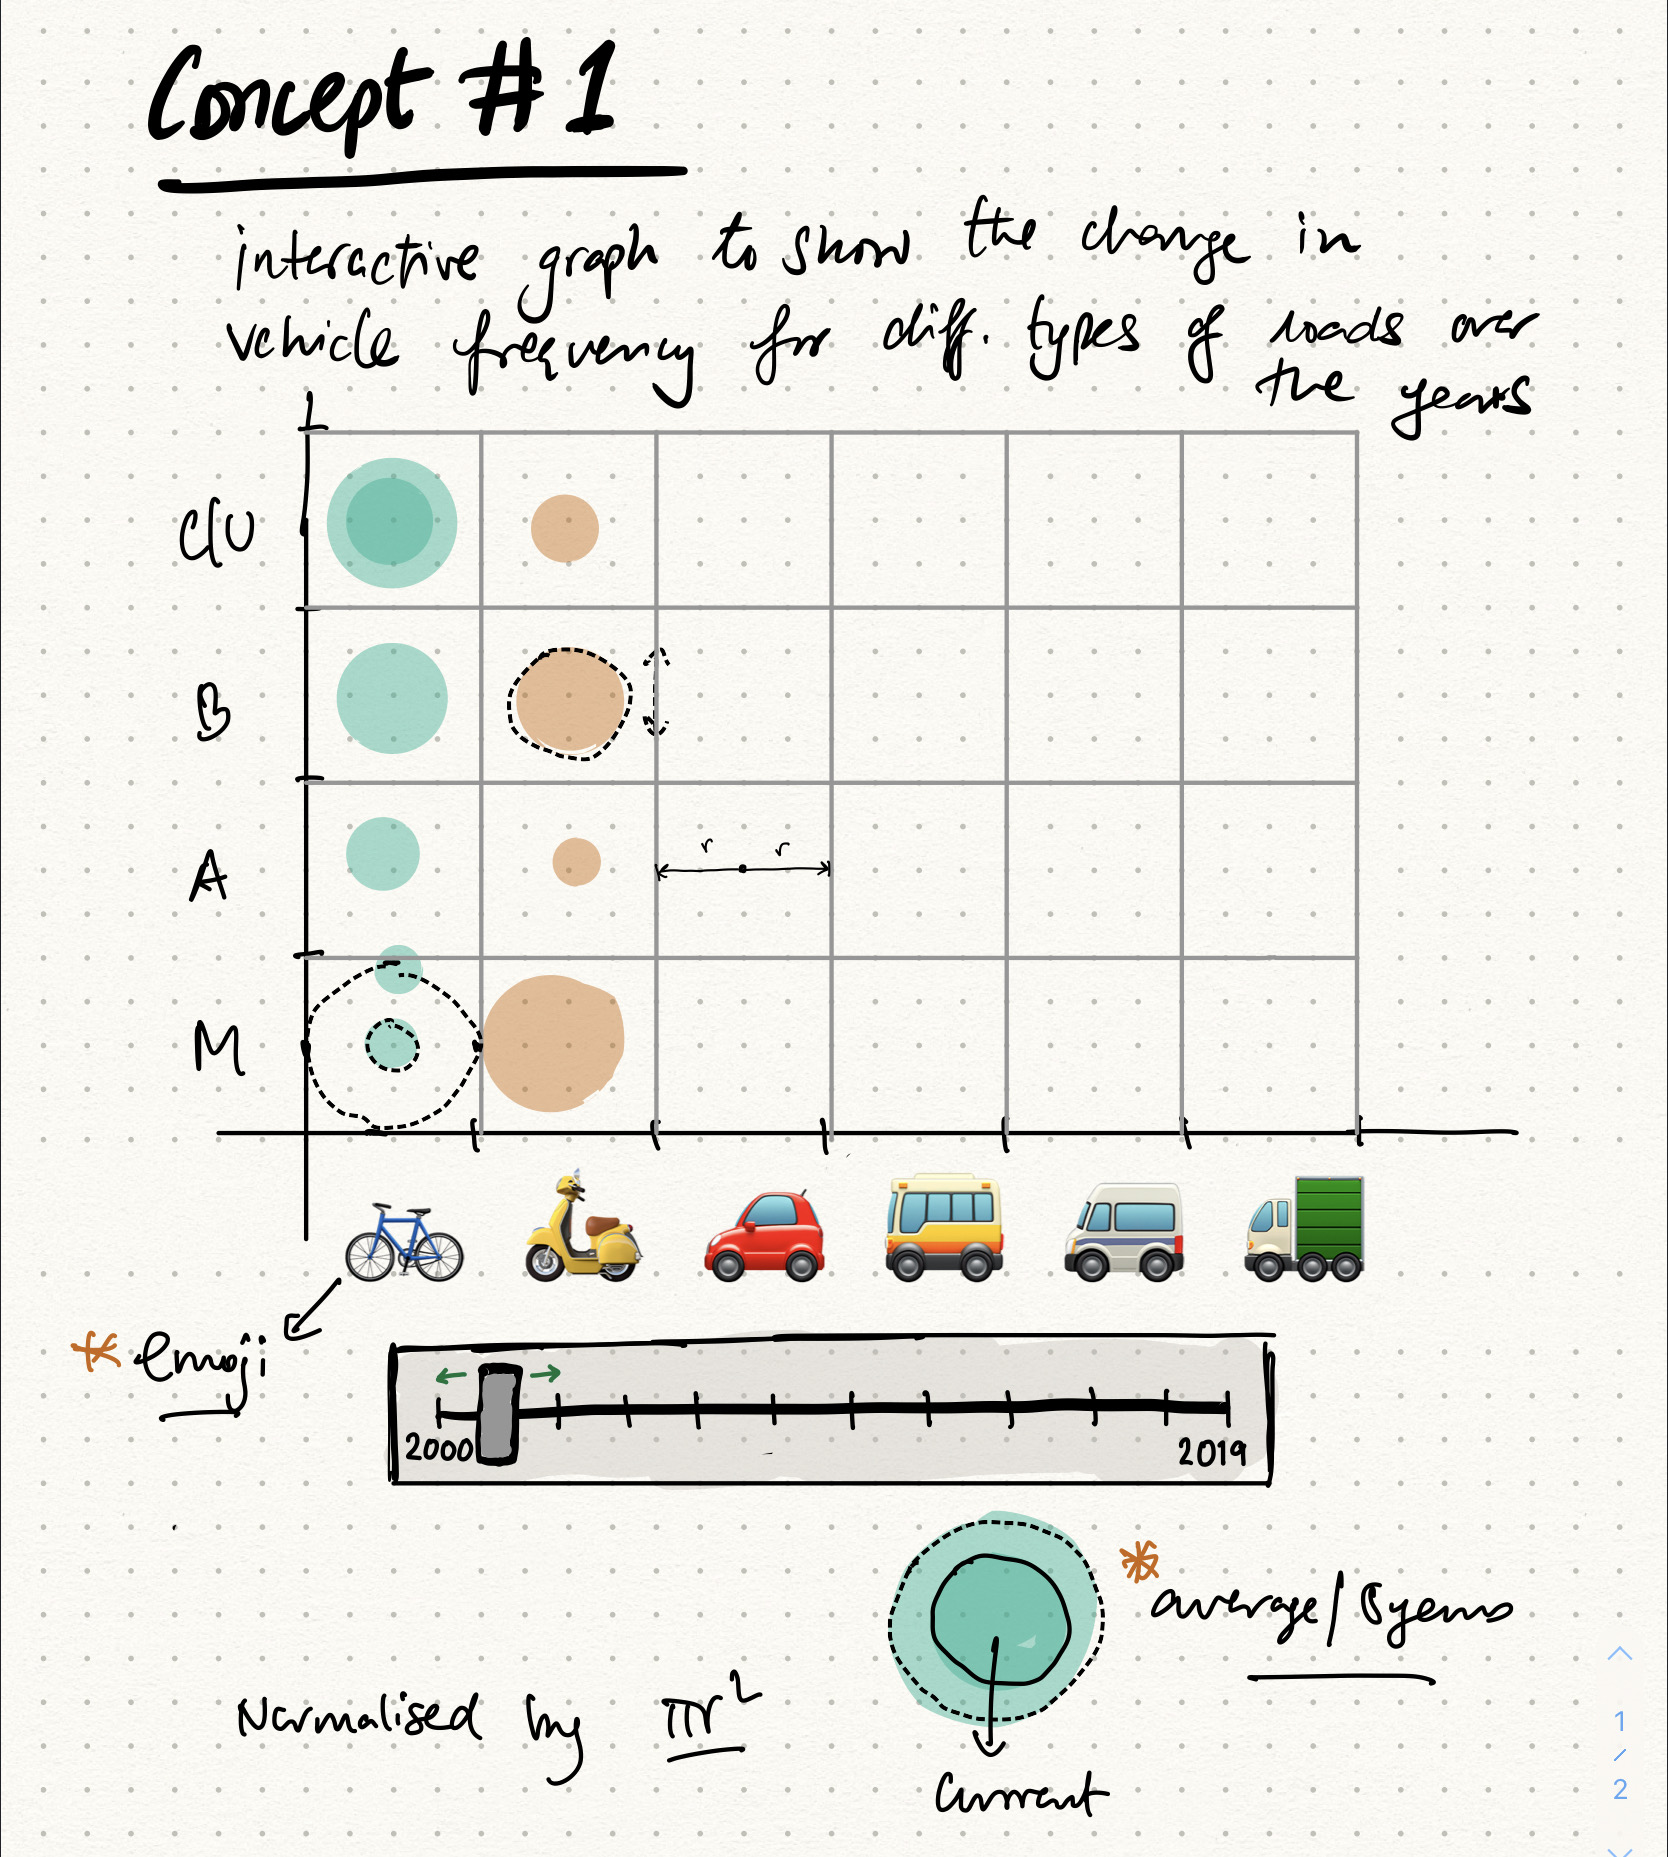 Concept #1
interactive graph to show the change in
vehicle frequency for diff. types of roads over
the years
C/U
B
r r
A
M
* emoji
2000 2019
* average/
Normalised by πr²
Current
1
/
2